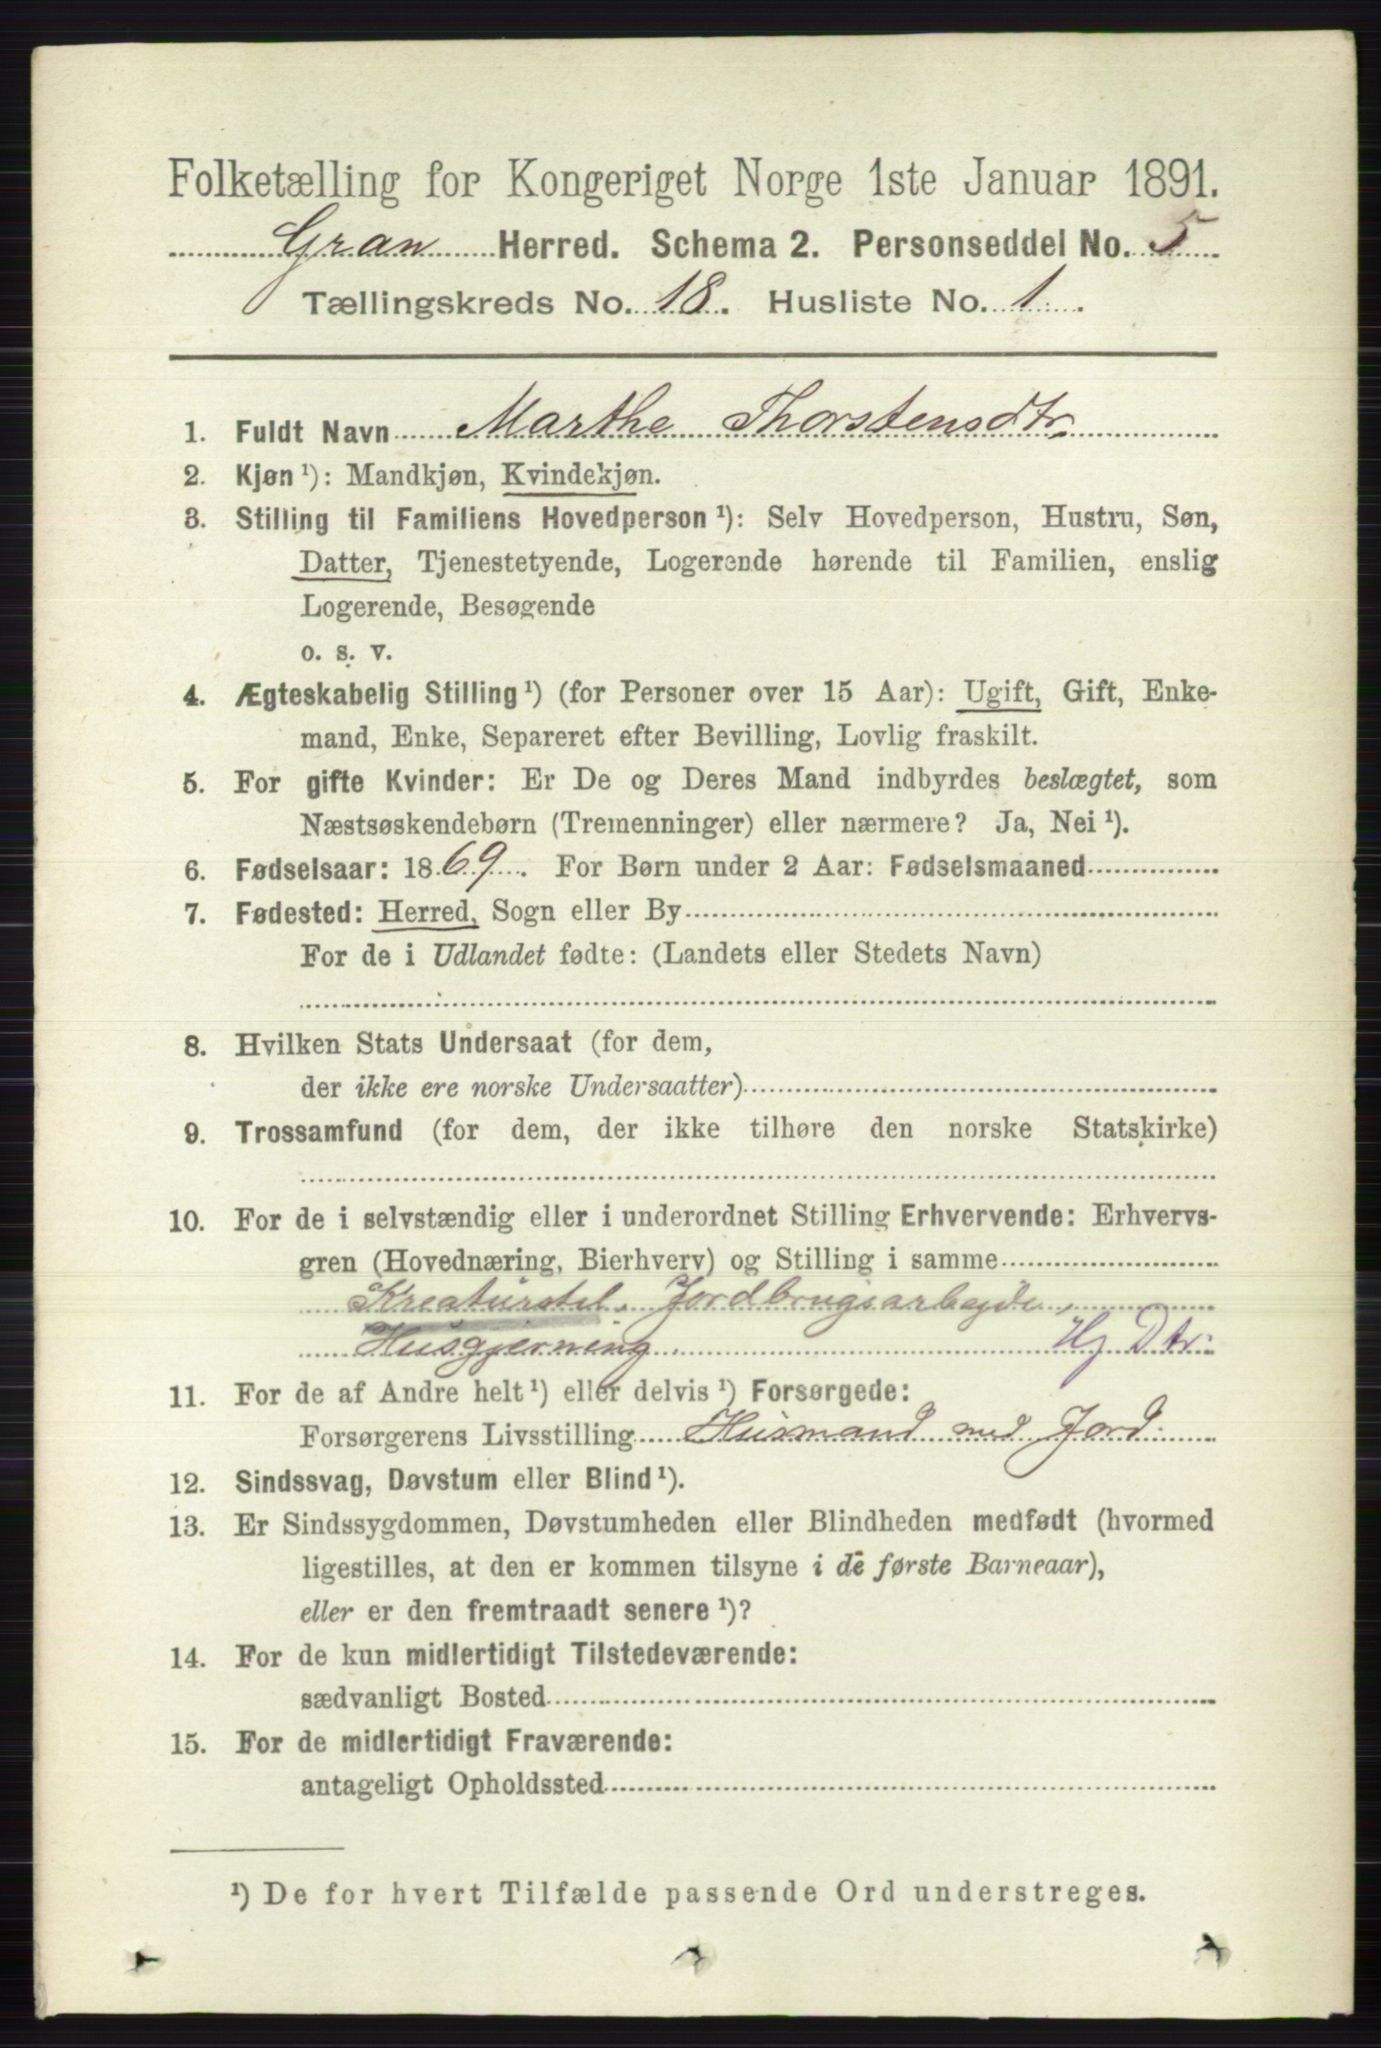 Folketælling for Kongeriget Norge 1ste Januar 1891.
Gran Herred. Schema 2. Personseddel No. 5
Tællingskreds No. 18. Husliste No. 1.
1. Fuldt Navn Marthe Thorstensdtr.
2. Kjøn¹): Mandkjøn, Kvindekjøn.
3. Stilling til Familiens Hovedperson¹): Selv Hovedperson, Hustru, Søn,
Datter, Tjenestetyende, Logerende hørende til Familien, enslig
Logerende, Besøgende
o. s. v.
4. Ægteskabelig Stilling¹) (for Personer over 15 Aar): Ugift, Gift, Enke-
mand, Enke, Separeret efter Bevilling, Lovlig fraskilt.
5. For gifte Kvinder: Er De og Deres Mand indbyrdes beslægtet, som
Næstsøskendebørn (Tremenninger) eller nærmere? Ja, Nei¹).
6. Fødselsaar: 1869. For Børn under 2 Aar: Fødselsmaaned
7. Fødested: Herred, Sogn eller By
For de i Udlandet fødte: (Landets eller Stedets Navn)
8. Hvilken Stats Undersaat (for dem,
der ikke ere norske Undersaatter)
9. Trossamfund (for dem, der ikke tilhøre den norske Statskirke)
10. For de i selvstændig eller i underordnet Stilling Erhvervende: Erhvervs-
gren (Hovednæring, Bierhverv) og Stilling i samme
Kreaturstel, Jordbrugsarbejde,
Husgjerning. Hj Dtr.
11. For de af Andre helt¹) eller delvis¹) Forsørgede:
Forsørgerens Livsstilling Husmand med Jord.
12. Sindssvag, Døvstum eller Blind¹).
13. Er Sindssygdommen, Døvstumheden eller Blindheden medfødt (hvormed
ligestilles, at den er kommen tilsyne i de første Barneaar),
eller er den fremtraadt senere¹)?
14. For de kun midlertidigt Tilstedeværende:
sædvanligt Bosted
15. For de midlertidigt Fraværende:
antageligt Opholdssted
¹) De for hvert Tilfælde passende Ord understreges.